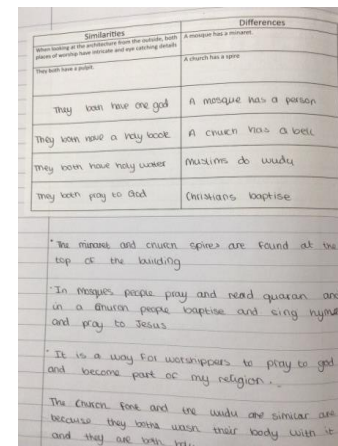 Similarities
Differences
When looking at the architecture from the outside, both places of worship have intricate and eye catching details
A mosque has a minaret.
They both have a pulpit.
A church has a spire
They both have one god
A mosque has a person
They both have a holy book
A church has a bell
They both have holy water
Muslims do wudu
They both pray to God
Christians baptise
• The minaret and church spires are found at the
top of the building
• In mosques people pray and read quaran and
in a church people baptise and sing hymns
and pray to Jesus
• It is a way for worshippers to pray to god
and become part of my religion.
The Church font and the wudu are similar are
because they boths wash their body with it
and they are both